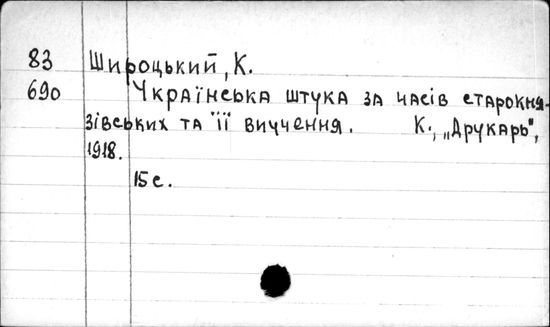 83 Широцький, К.
690 Українська штука за часів старокня-
зівських та її вмучення. К., „Друкарь",
1918.
15 с.